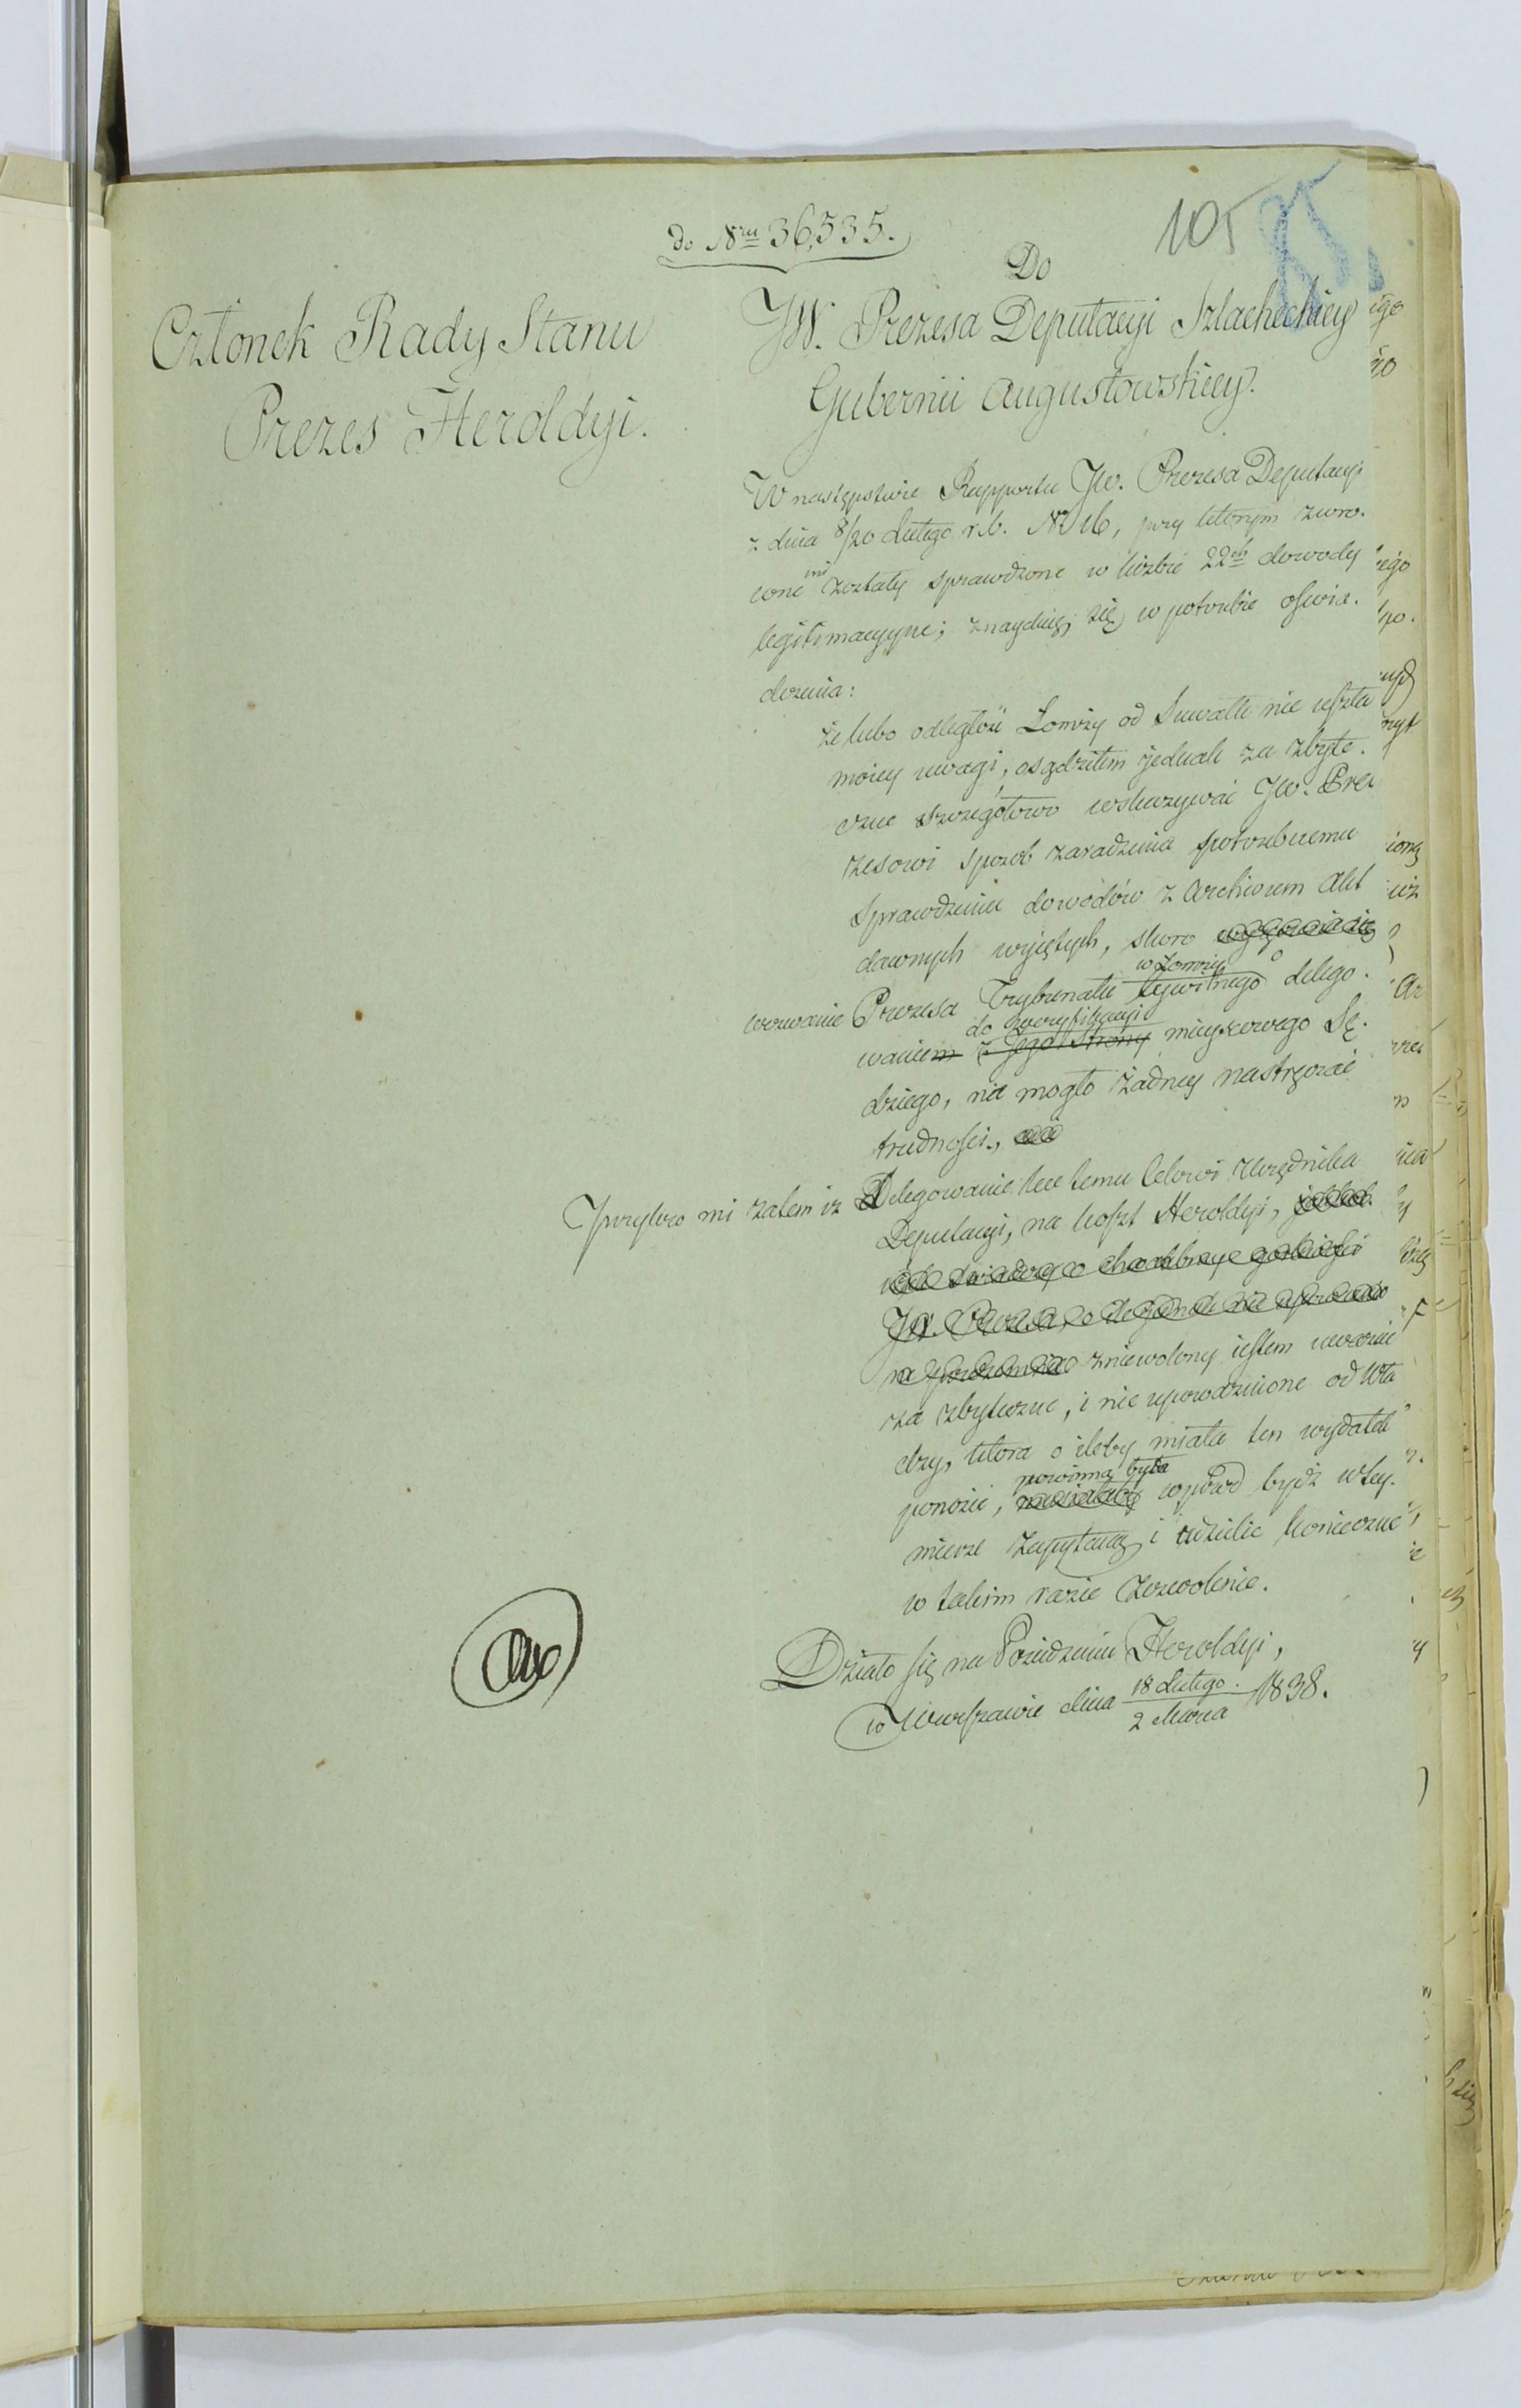 105
85
do Nru 36,535.
Członek Rady Stanu
Prezes Heroldyi.
Do
JW. Prezesa Deputacyi Szlacheckiey
Gubernii Augustowskiey.
W następstwie Rapportu JW. Prezesa Deputacyi
z dnia 8/20 Lutego r.b. No 16, przy którym zwró-
cone mi zostały sprawdzone w liczbie 22ch dowody
legitimacyyne; znayduię się w potrzebie oświa-
dczenia:
że lubo odległość Łomży od Suwałk nie uszła
moiey uwagi, osądziłem jednak za zbyte-
czne szczegółowo wskazywać JW. Pre-
zesowi sposób zaradzenia potrzebnemu
sprawdzeniu dowodów z Archiwum Akt
dawnych wyiętych, skoro
wezwanie Prezesa Trybunału cywilnego w Łomży o delego-
waniem z Jego Strony do zweryfikacyi mieyscowego Sę-
dziego, nie mogło żadney nastręczać
trudności.,
Przykro mi zatem iż Delegowanie ku temu celowi Urzędnika
Deputacyi, na koszt Heroldyi,
JW. Prezesa,
zniewolony iestem uważać
za zbyteczne, i nie upoważnione od Wła-
dzy, która o ileby miała ten wydatek
ponosić, powinna była wprzód bydź w tey
mierze zapytaną i udzielić konieczne
w takim razie zezwolenie.
Działo się na Posiedzeniu Heroldyi,
w Warszawie dnia 18 Lutego / 2 Marca 1838.